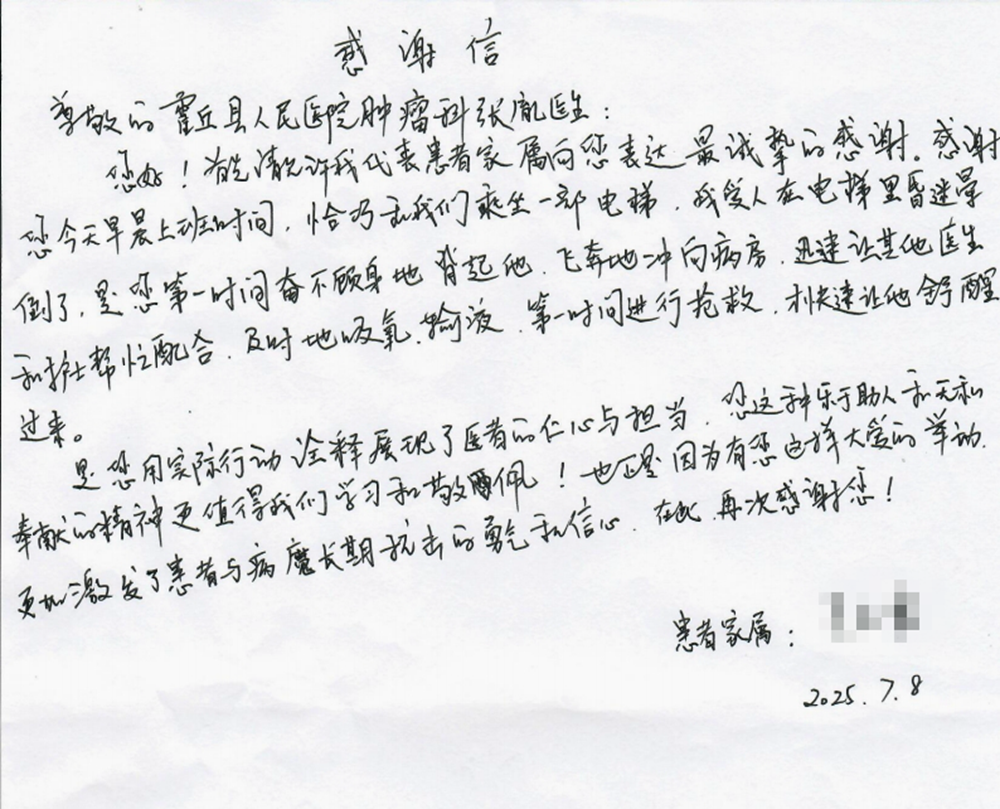 感谢信
尊敬的霍丘县人民医院肿瘤科张胤医生：
您好！首先请允许我代表患者家属向您表达最诚挚的感谢。感谢
您今天早晨上班时间，恰乃和我们乘坐一部电梯，我爱人在电梯里昏迷晕
倒了，是您第一时间奋不顾身地背起他、飞奔地冲向病房，迅速让其他医生
和护士帮忙配合、及时地吸氧、输液、第一时间进行抢救，才快速让他舒醒
过来。
是您用实际行动诠释展现了医者的仁心与担当，您这种乐于助人和无私
奉献的精神更值得我们学习和敬佩！也正是因为有您这样大爱的举动，
更加激发了患者与病魔长期抗击的勇气和信心，在此，再次感谢您！
患者家属：
2025.7.8